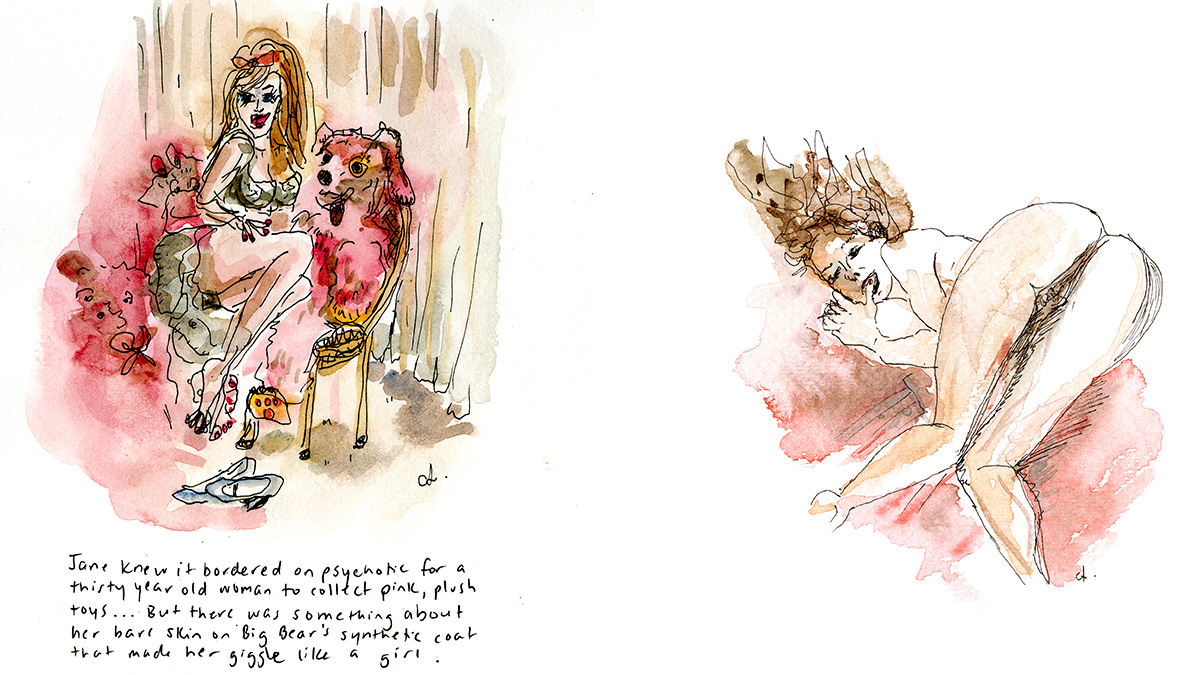 Jane knew it bordered on psychotic for a
thirty year old woman to collect pink, plush
toys... But there was something about
her bare skin on Big Bear's synthetic coat
that made her giggle like a girl.